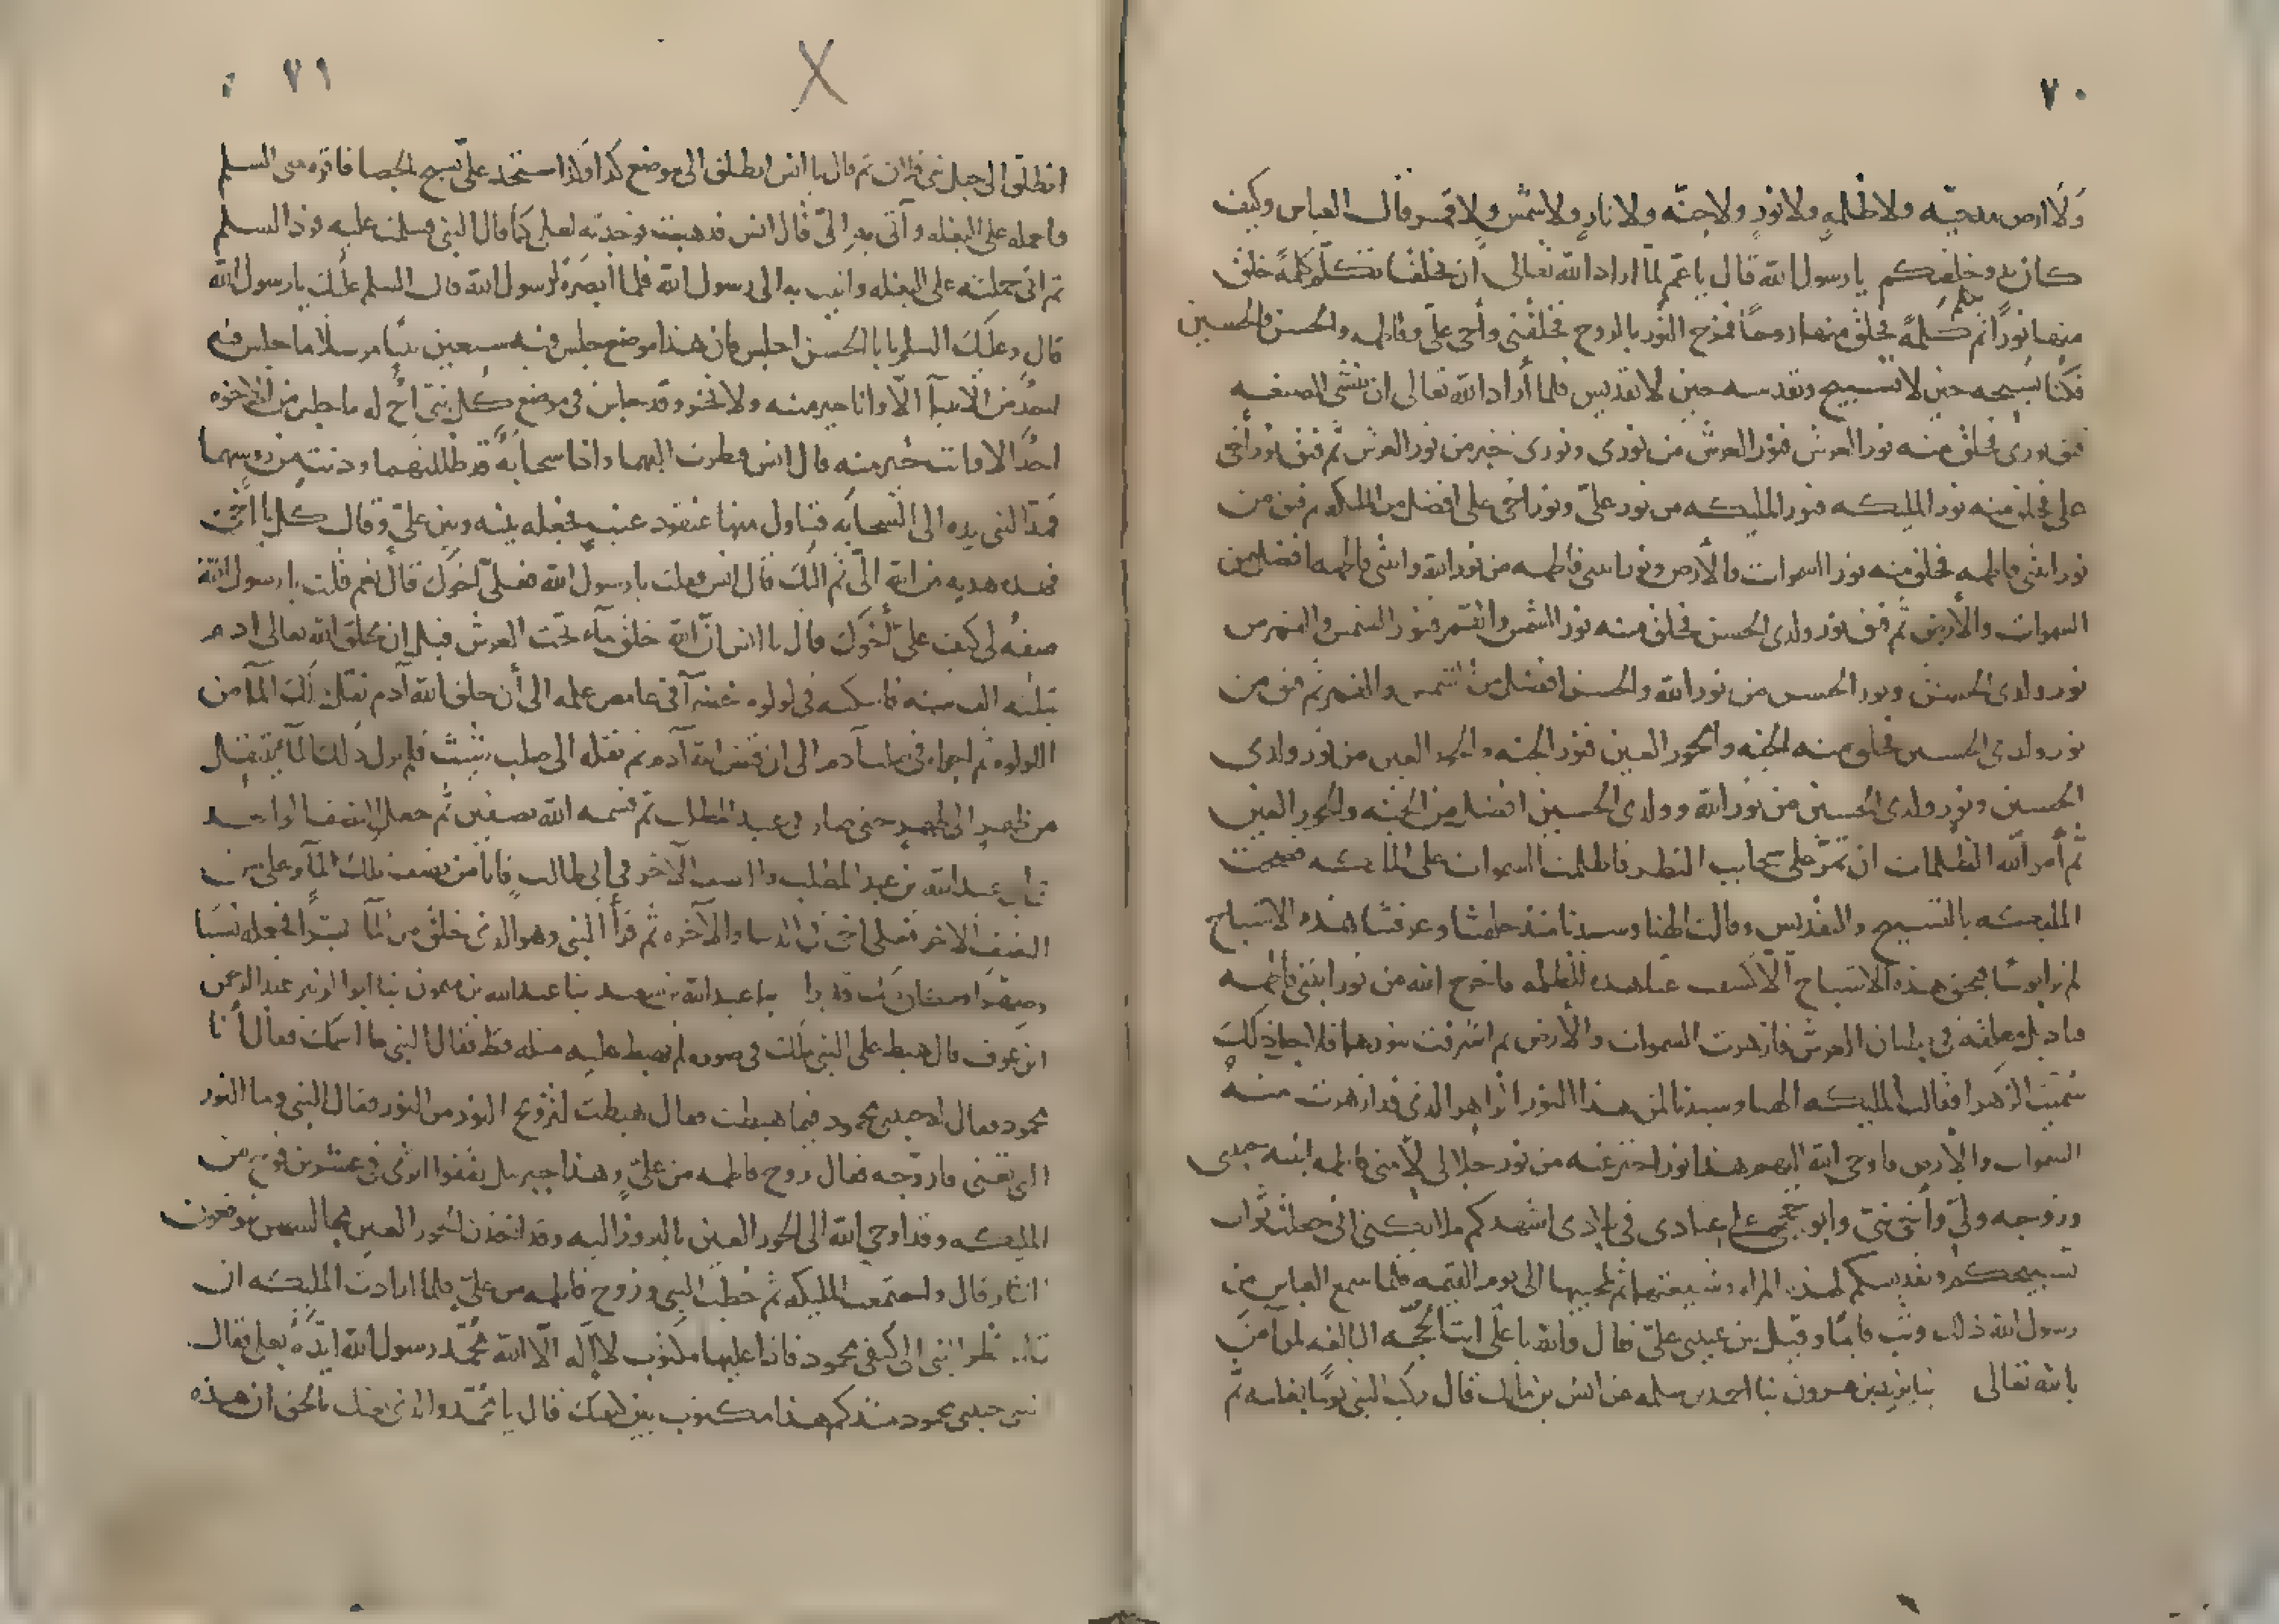 ٧٠
ولا ارض مدحيّه ولا ظلمه ولا نور ولا جنّه ولا نار ولا شمس ولا قمر فقال العباس وكيف
كان بدو خلقكم يا رسول الله قال يا عمّ لمّا اراد الله تعالى ان يخلقنا تكلّم كلمةً خلق
منها نورًا ثم تكلم كلمةً فخلق منها روحًا فمزج النور بالروح فخلقني وأخي علي وفاطمه والحسن والحسين
فكنا نسبحه حين لا تسبيح ونقدسه حين لا تقديس فلما أراد الله تعالى ان ينشي الصنعه
فتق نوري فخلق منه نور العرش فنور العرش من نوري ونوري خير من نور العرش ثم فتق نور أخي
علي فخلق منه نور المليكه فنور المليكه من نور عليّ ونور اخي علي افضل من المليكه ثم فتق من
نور ابنتي فاطمه فخلق منه نور السموات والأرض ونور ابنتي فاطمه من نور الله وابنتي فاطمه افضل من
السموات والأرض ثم فتق نور ولدي الحسن فخلق منه نور الشمس والقمر فنور الشمس والقمر من
نور ولدي الحسن ونور الحسن من نور الله والحسن افضل من الشمس والقمر ثم فتق من
نور ولدي الحسين فخلق منه الجنه والحور العين فنور الجنه والحور العين من نور ولدي
الحسين ونور ولدي الحسين من نور الله وولدي الحسين افضل من الجنه والحور العين
ثم أمر الله الظلمات ان تمرّ على سحايب النظر فاظلمت السموات على الملائكه فضجت
المليكه بالتسبيح والتقديس وقالت الهنا وسيدنا منذ خلقتنا وعرفتنا هذه الاشباح
لم نر ابوسًا فبحق هذه الاشباح ألّا كشفت عنا هذه الظلمه فاخرج الله من نور ابنتي فاطمه
قناديل معلقه في بطنان العرش فازهرت السموات والأرض ثم اشرقت بنورها فلاجل ذلك
سُمّيت الزهرا فقالت المليكه الهنا وسيدنا لمن هذا النور الزاهر الذي قد ازهرت منه
السموات والأرض فاوحى الله اليهم هذا نور اخترعته من نور جلالي لأمتي فاطمه ابنة حبيبي
وزوجه وليّ وأخي نبيّ وابو حججي على عبادي في بلادي اشهدكم ملائكتي اني جعلت ثواب
تسبيحكم وتقديسكم لهذه المراه وشيعتها ثم لمحبيها الى يوم القيمه فلما سمع العباس من
رسول الله ذلك وثب قايمًا وقبل بين عيني عليّ فقال والله يا علي انت الحجّه البالغه لمن آمن
بالله تعالى نبا يزيد بن هرون نبا احمد بن سلمه عن انس بن مالك قال ركب النبي يومًا بغلته ثم
٧١
انطلق الى جبل ثم قال يا انس انطلق الى موضع كذا وكذا ستجد عليّ يسبح بالحصا فاقره مني السلم
فاحمله على البغله وآتي به إليّ قال انس فذهبت فوجدته لعلي كما قال النبي فسلمت عليه وذا السلم
ثم اني حملته على البغله واتيت به الى رسول الله فلما أبصره لرسول الله قال السلم عليك يا رسول الله
قال وعليك السلم يابا الحسن اجلس فان هذا موضع جلس فيه سبعين نبيًا مرسلًا ما جلس فيه
احدٌ من الأنبيآ الّا وانا خير منه وقد جلس في موضع كل نبيّ أخٌ له ما جلس من الاخوه
احدٌ الا وانت خير منه قال انس فنظرت اليهما واذا سحابةٌ قد ظللتهما ودنت من روسهما
فمدّ النبي يده الى السحابه فتناول منها عنقود عنب فجعله بينه وبين عليّ وقال كل يا أخي
فهذه هديه من الله اليّ ثم اليك قال انس فقلت يا رسول الله فعليّ أخوك قال نعم قلت يا رسول الله
صفه لي كيف عليّ أخوك قال يا انس انّ الله خلق مآء تحت العرش قبل ان يخلق الله تعالى ادم
بثلثه الف سنه فاسكنه في لولوه خضرآ في غامض علمه الى أن خلق الله آدم نقل ذلك المآ من
اللولوه ثم اجراه في صلب آدم الى ان قبض الله آدم ثم نقله الى صلب شيث فلم يزل ذلك المآ ينتقل
من ظهر الى ظهر حتى صار في عبد المطلب ثم قسمه الله نصفين ثم جعل النصف الواحد
في أبي عبد الله بن عبد المطلب والنصف الآخر في أبي طالب فانا من نصف ذلك المآ وعلي من
النصف الاخر فعلي اخي في الدنيا والآخره ثم قرأ النبي وهو الذي خلق من المآ بشرًا فجعله نسبًا
وصهرًا وكان ربك قديرا نبا عبد الله بن سعيد نبا عبد الله بن ميمون نبا ابو الزبير عبد الرحمن
ابن عوف قال هبط على النبي ملك في صوره لم يهبط عليه مثله قط فقال النبي ما اسمك فقال أنا
محمود فقال له حبيبي محمود فيما هبطت فقال هبطت لتزويج النور من النور فقال النبي وما النور
الذي تعني فازوّجه فقال زوج فاطمه من عليّ وهذا جبريل يقفوا اثري في عشرين فوج من
المليكه وقد اوحى الله الى الحور العين بالبروز اليه وقد اتخذن الحور العين مجالسهن
النثار قال واجتمعت المليكه ثم خطب النبي وزوج فاطمه من عليّ فلما ارادت المليكه ان
نظر النبي الى كتفي محمود فاذا عليها مكتوب لا إله الّا الله محمّد رسول الله ايّده بعلي فقال
النبي حبيبي محمود منذ كم هذا مكتوب بين كتفيك قال يا محمّد والذي بعثك بالحق ان هذه